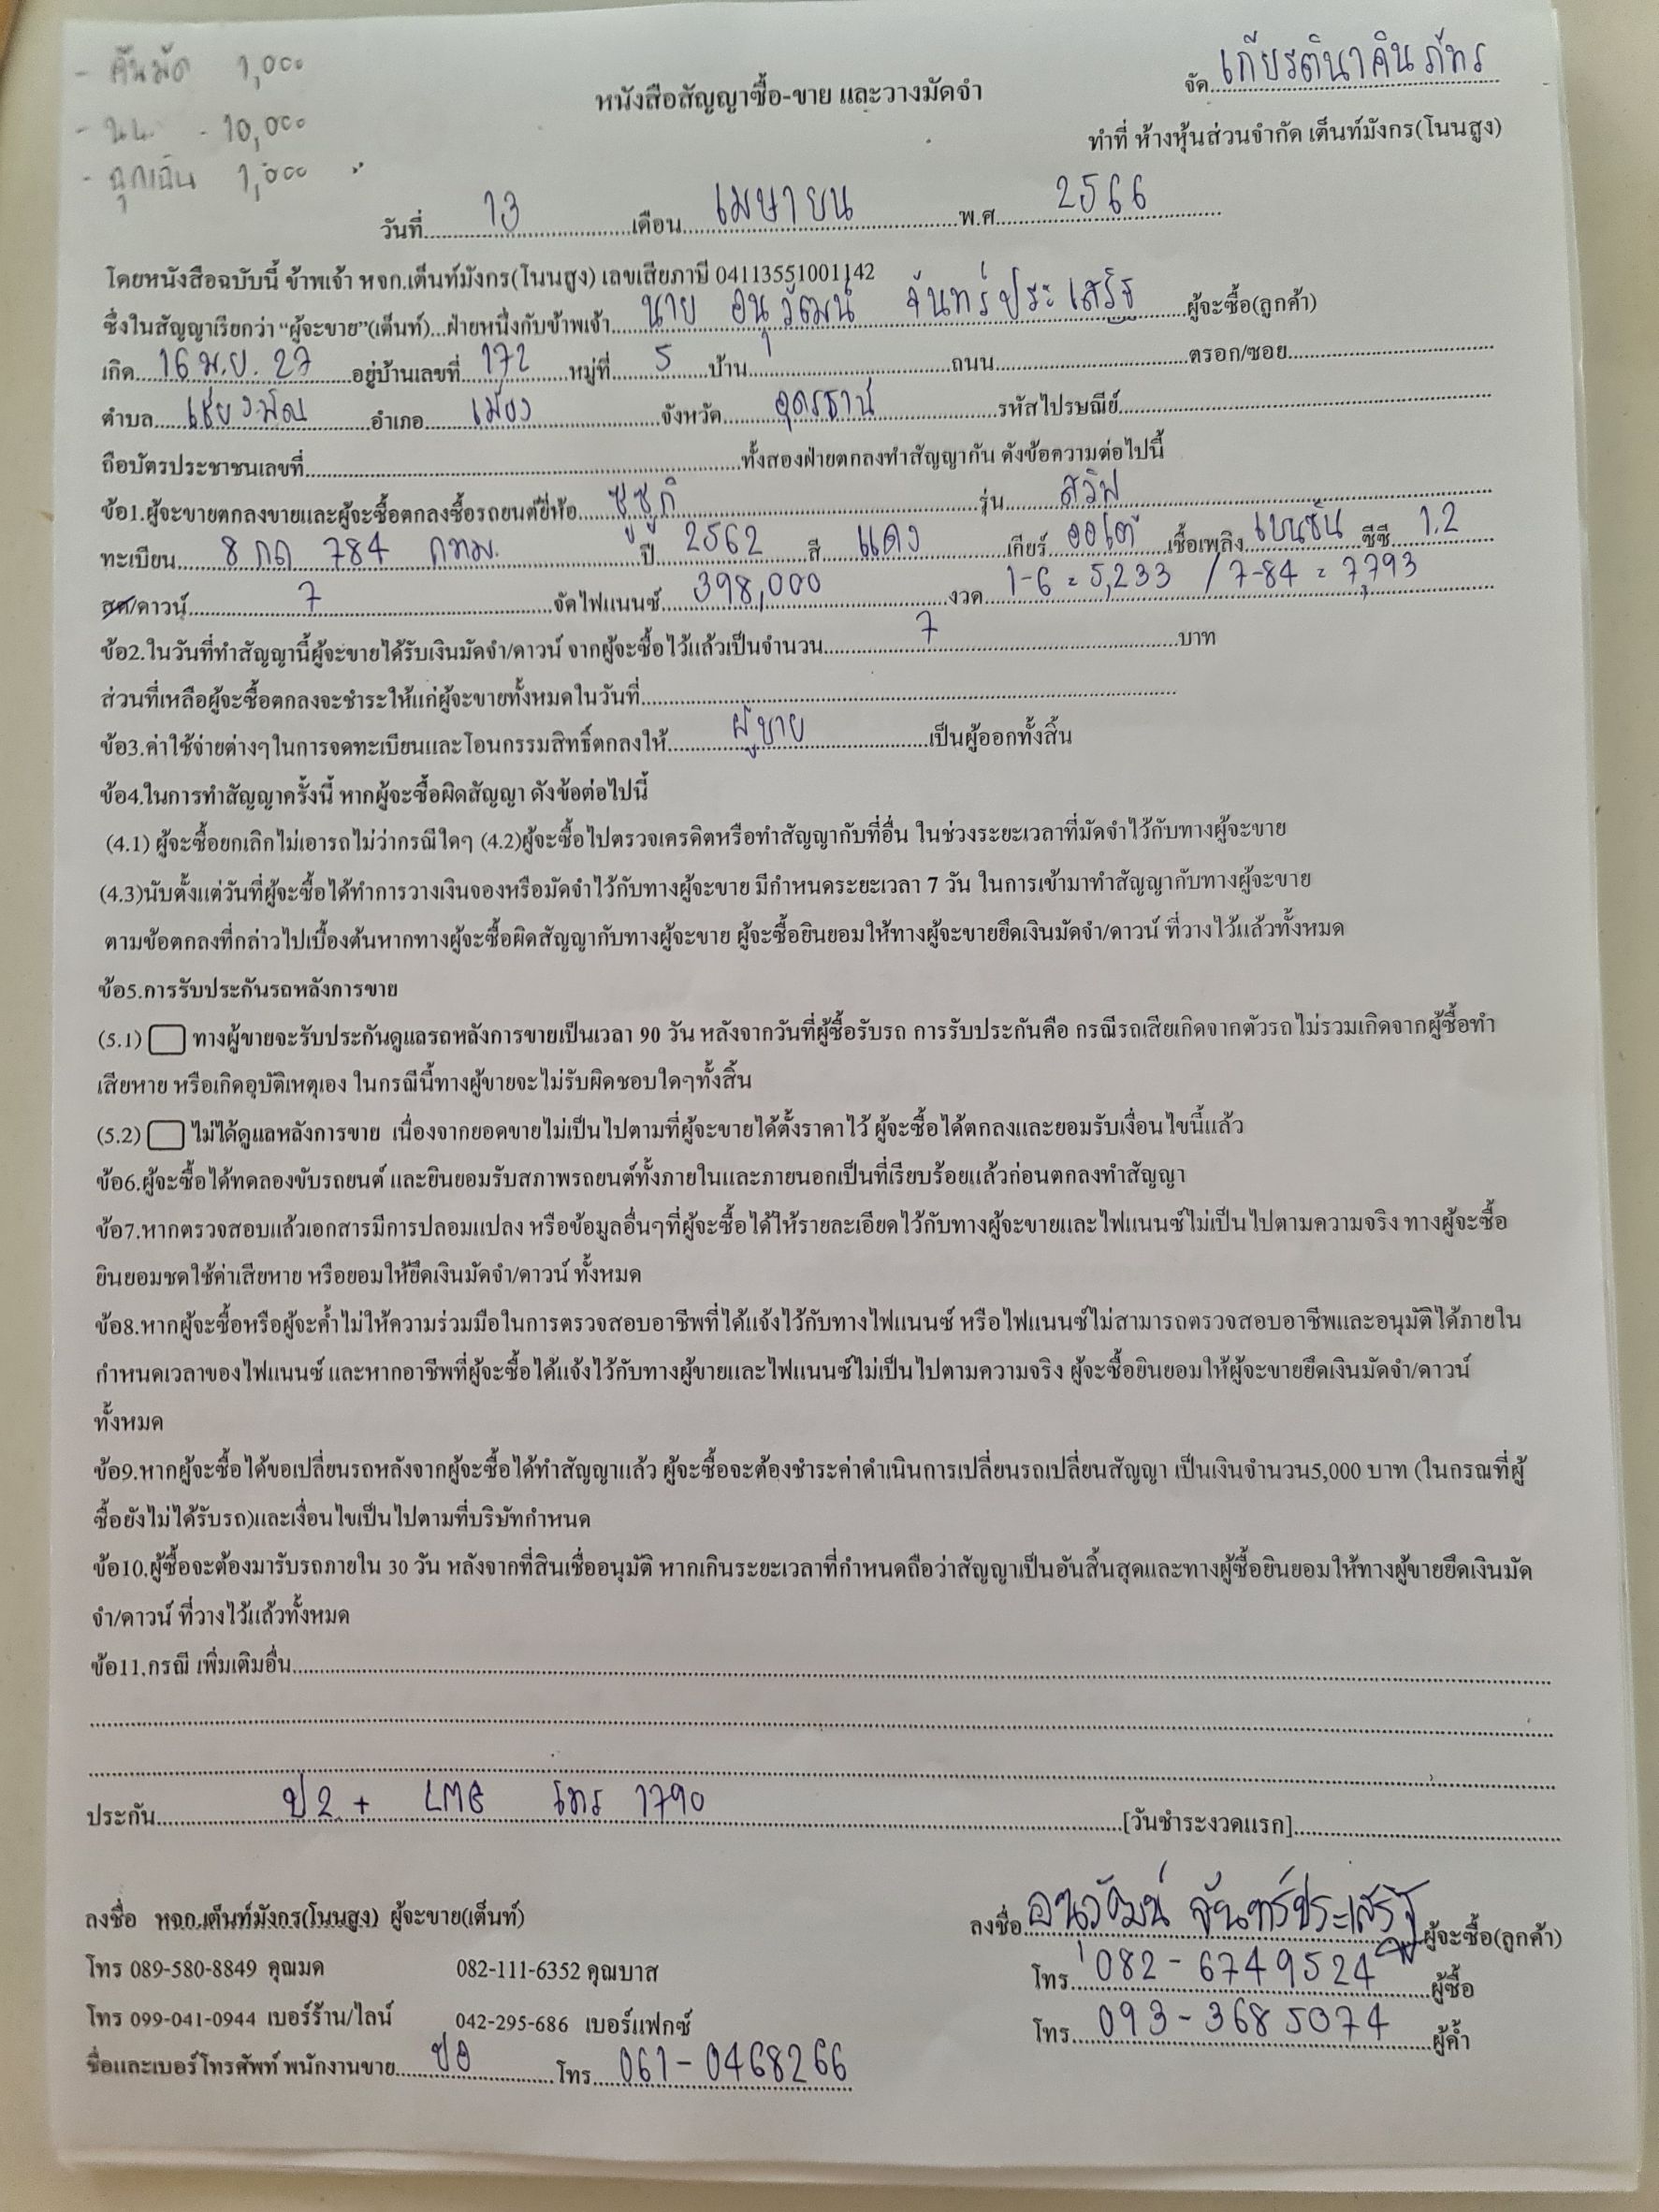 - คืนมัด 1,000
- นน. - 10,000
- ฉุกเฉิน 1,000
จัด เกียรตินาคินภัทร
หนังสือสัญญาซื้อ-ขาย และวางมัดจำ
ทำที่ ห้างหุ้นส่วนจำกัด เต็นท์มังกร(โนนสูง)
วันที่ 13 เดือน เมษายน พ.ศ 2566
โดยหนังสือฉบับนี้ ข้าพเจ้า หจก.เต็นท์มังกร(โนนสูง) เลขเสียภาษี 04113551001142
ซึ่งในสัญญาเรียกว่า “ผู้จะขาย”(เต็นท์)...ฝ่ายหนึ่งกับข้าพเจ้า นาย อนุวัฒน์ จันทร์ประเสริฐ ผู้จะซื้อ(ลูกค้า)
เกิด 16 ม.ย. 27 อยู่บ้านเลขที่ 172 หมู่ที่ 5 บ้าน ถนน ตรอก/ซอย
ตำบล เชียงพิณ อำเภอ เมือง จังหวัด อุดรธานี รหัสไปรษณีย์
ถือบัตรประชาชนเลขที่ ทั้งสองฝ่ายตกลงทำสัญญากัน ดังข้อความต่อไปนี้
ข้อ1.ผู้จะขายตกลงขายและผู้จะซื้อตกลงซื้อรถยนต์ยี่ห้อ ซูซูกิ รุ่น สวิฟ
ทะเบียน 8 กถ 784 กทม. ปี 2562 สี แดง เกียร์ ออโต้ เชื้อเพลิง เบนซิน ซีซี 1.2
สด/ดาวน์ 7 จัดไฟแนนซ์ 398,000 งวด 1-6 = 5,233 / 7-84 = 7,793
ข้อ2.ในวันที่ทำสัญญานี้ผู้จะขายได้รับเงินมัดจำ/ดาวน์ จากผู้จะซื้อไว้แล้วเป็นจำนวน 7 บาท
ส่วนที่เหลือผู้จะซื้อตกลงจะชำระให้แก่ผู้จะขายทั้งหมดในวันที่
ข้อ3.ค่าใช้จ่ายต่างๆในการจดทะเบียนและโอนกรรมสิทธิ์ตกลงให้ ผู้ขาย เป็นผู้ออกทั้งสิ้น
ข้อ4.ในการทำสัญญาครั้งนี้ หากผู้จะซื้อผิดสัญญา ดังข้อต่อไปนี้
(4.1) ผู้จะซื้อยกเลิกไม่เอารถไม่ว่ากรณีใดๆ (4.2)ผู้จะซื้อไปตรวจเครดิตหรือทำสัญญากับที่อื่น ในช่วงระยะเวลาที่มัดจำไว้กับทางผู้จะขาย
(4.3)นับตั้งแต่วันที่ผู้จะซื้อได้ทำการวางเงินจองหรือมัดจำไว้กับทางผู้จะขาย มีกำหนดระยะเวลา 7 วัน ในการเข้ามาทำสัญญากับทางผู้จะขาย
ตามข้อตกลงที่กล่าวไปเบื้องต้นหากทางผู้จะซื้อผิดสัญญากับทางผู้จะขาย ผู้จะซื้อยินยอมให้ทางผู้จะขายยึดเงินมัดจำ/ดาวน์ ที่วางไว้แล้วทั้งหมด
ข้อ5.การรับประกันรถหลังการขาย
(5.1) ทางผู้ขายจะรับประกันดูแลรถหลังการขายเป็นเวลา 90 วัน หลังจากวันที่ผู้ซื้อรับรถ การรับประกันคือ กรณีรถเสียเกิดจากตัวรถ ไม่รวมเกิดจากผู้ซื้อทำ
เสียหาย หรือเกิดอุบัติเหตุเอง ในกรณีนี้ทางผู้ขายจะไม่รับผิดชอบใดๆทั้งสิ้น
(5.2) ไม่ได้ดูแลหลังการขาย เนื่องจากยอดขายไม่เป็นไปตามที่ผู้จะขายได้ตั้งราคาไว้ ผู้จะซื้อได้ตกลงและยอมรับเงื่อนไขนี้แล้ว
ข้อ6.ผู้จะซื้อได้ทดลองขับรถยนต์ และยินยอมรับสภาพรถยนต์ทั้งภายในและภายนอกเป็นที่เรียบร้อยแล้วก่อนตกลงทำสัญญา
ข้อ7.หากตรวจสอบแล้วเอกสารมีการปลอมแปลง หรือข้อมูลอื่นๆที่ผู้จะซื้อได้ให้รายละเอียดไว้กับทางผู้จะขายและไฟแนนซ์ไม่เป็นไปตามความจริง ทางผู้จะซื้อ
ยินยอมชดใช้ค่าเสียหาย หรือยอมให้ยึดเงินมัดจำ/ดาวน์ ทั้งหมด
ข้อ8.หากผู้จะซื้อหรือผู้จะค้ำไม่ให้ความร่วมมือในการตรวจสอบอาชีพที่ได้แจ้งไว้กับทางไฟแนนซ์ หรือไฟแนนซ์ไม่สามารถตรวจสอบอาชีพและอนุมัติได้ภายใน
กำหนดเวลาของไฟแนนซ์ และหากอาชีพที่ผู้จะซื้อได้แจ้งไว้กับทางผู้ขายและไฟแนนซ์ไม่เป็นไปตามความจริง ผู้จะซื้อยินยอมให้ผู้จะขายยึดเงินมัดจำ/ดาวน์
ทั้งหมด
ข้อ9.หากผู้จะซื้อได้ขอเปลี่ยนรถหลังจากผู้จะซื้อได้ทำสัญญาแล้ว ผู้จะซื้อจะต้องชำระค่าดำเนินการเปลี่ยนรถเปลี่ยนสัญญา เป็นเงินจำนวน5,000 บาท (ในกรณที่ผู้
ซื้อยังไม่ได้รับรถ)และเงื่อนไขเป็นไปตามที่บริษัทกำหนด
ข้อ10.ผู้ซื้อจะต้องมารับรถภายใน 30 วัน หลังจากที่สินเชื่ออนุมัติ หากเกินระยะเวลาที่กำหนดถือว่าสัญญาเป็นอันสิ้นสุดและทางผู้ซื้อยินยอมให้ทางผู้ขายยึดเงินมัด
จำ/ดาวน์ ที่วางไว้แล้วทั้งหมด
ข้อ11.กรณี เพิ่มเติมอื่น
ประกัน ป2+ LMG โทร 1790 [วันชำระงวดแรก]
ลงชื่อ หจก.เต็นท์มังกร(โนนสูง) ผู้จะขาย(เต็นท์)
ลงชื่อ อนุวัฒน์ จันทร์ประเสริฐ ผู้จะซื้อ(ลูกค้า)
โทร 089-580-8849 คุณมด 082-111-6352 คุณบาส
โทร 082-6749524 ผู้ซื้อ
โทร 099-041-0944 เบอร์ร้าน/ไลน์ 042-295-686 เบอร์แฟกซ์
โทร 093-3685074 ผู้ค้ำ
ชื่อและเบอร์โทรศัพท์ พนักงานขาย ปอ โทร 061-0468266